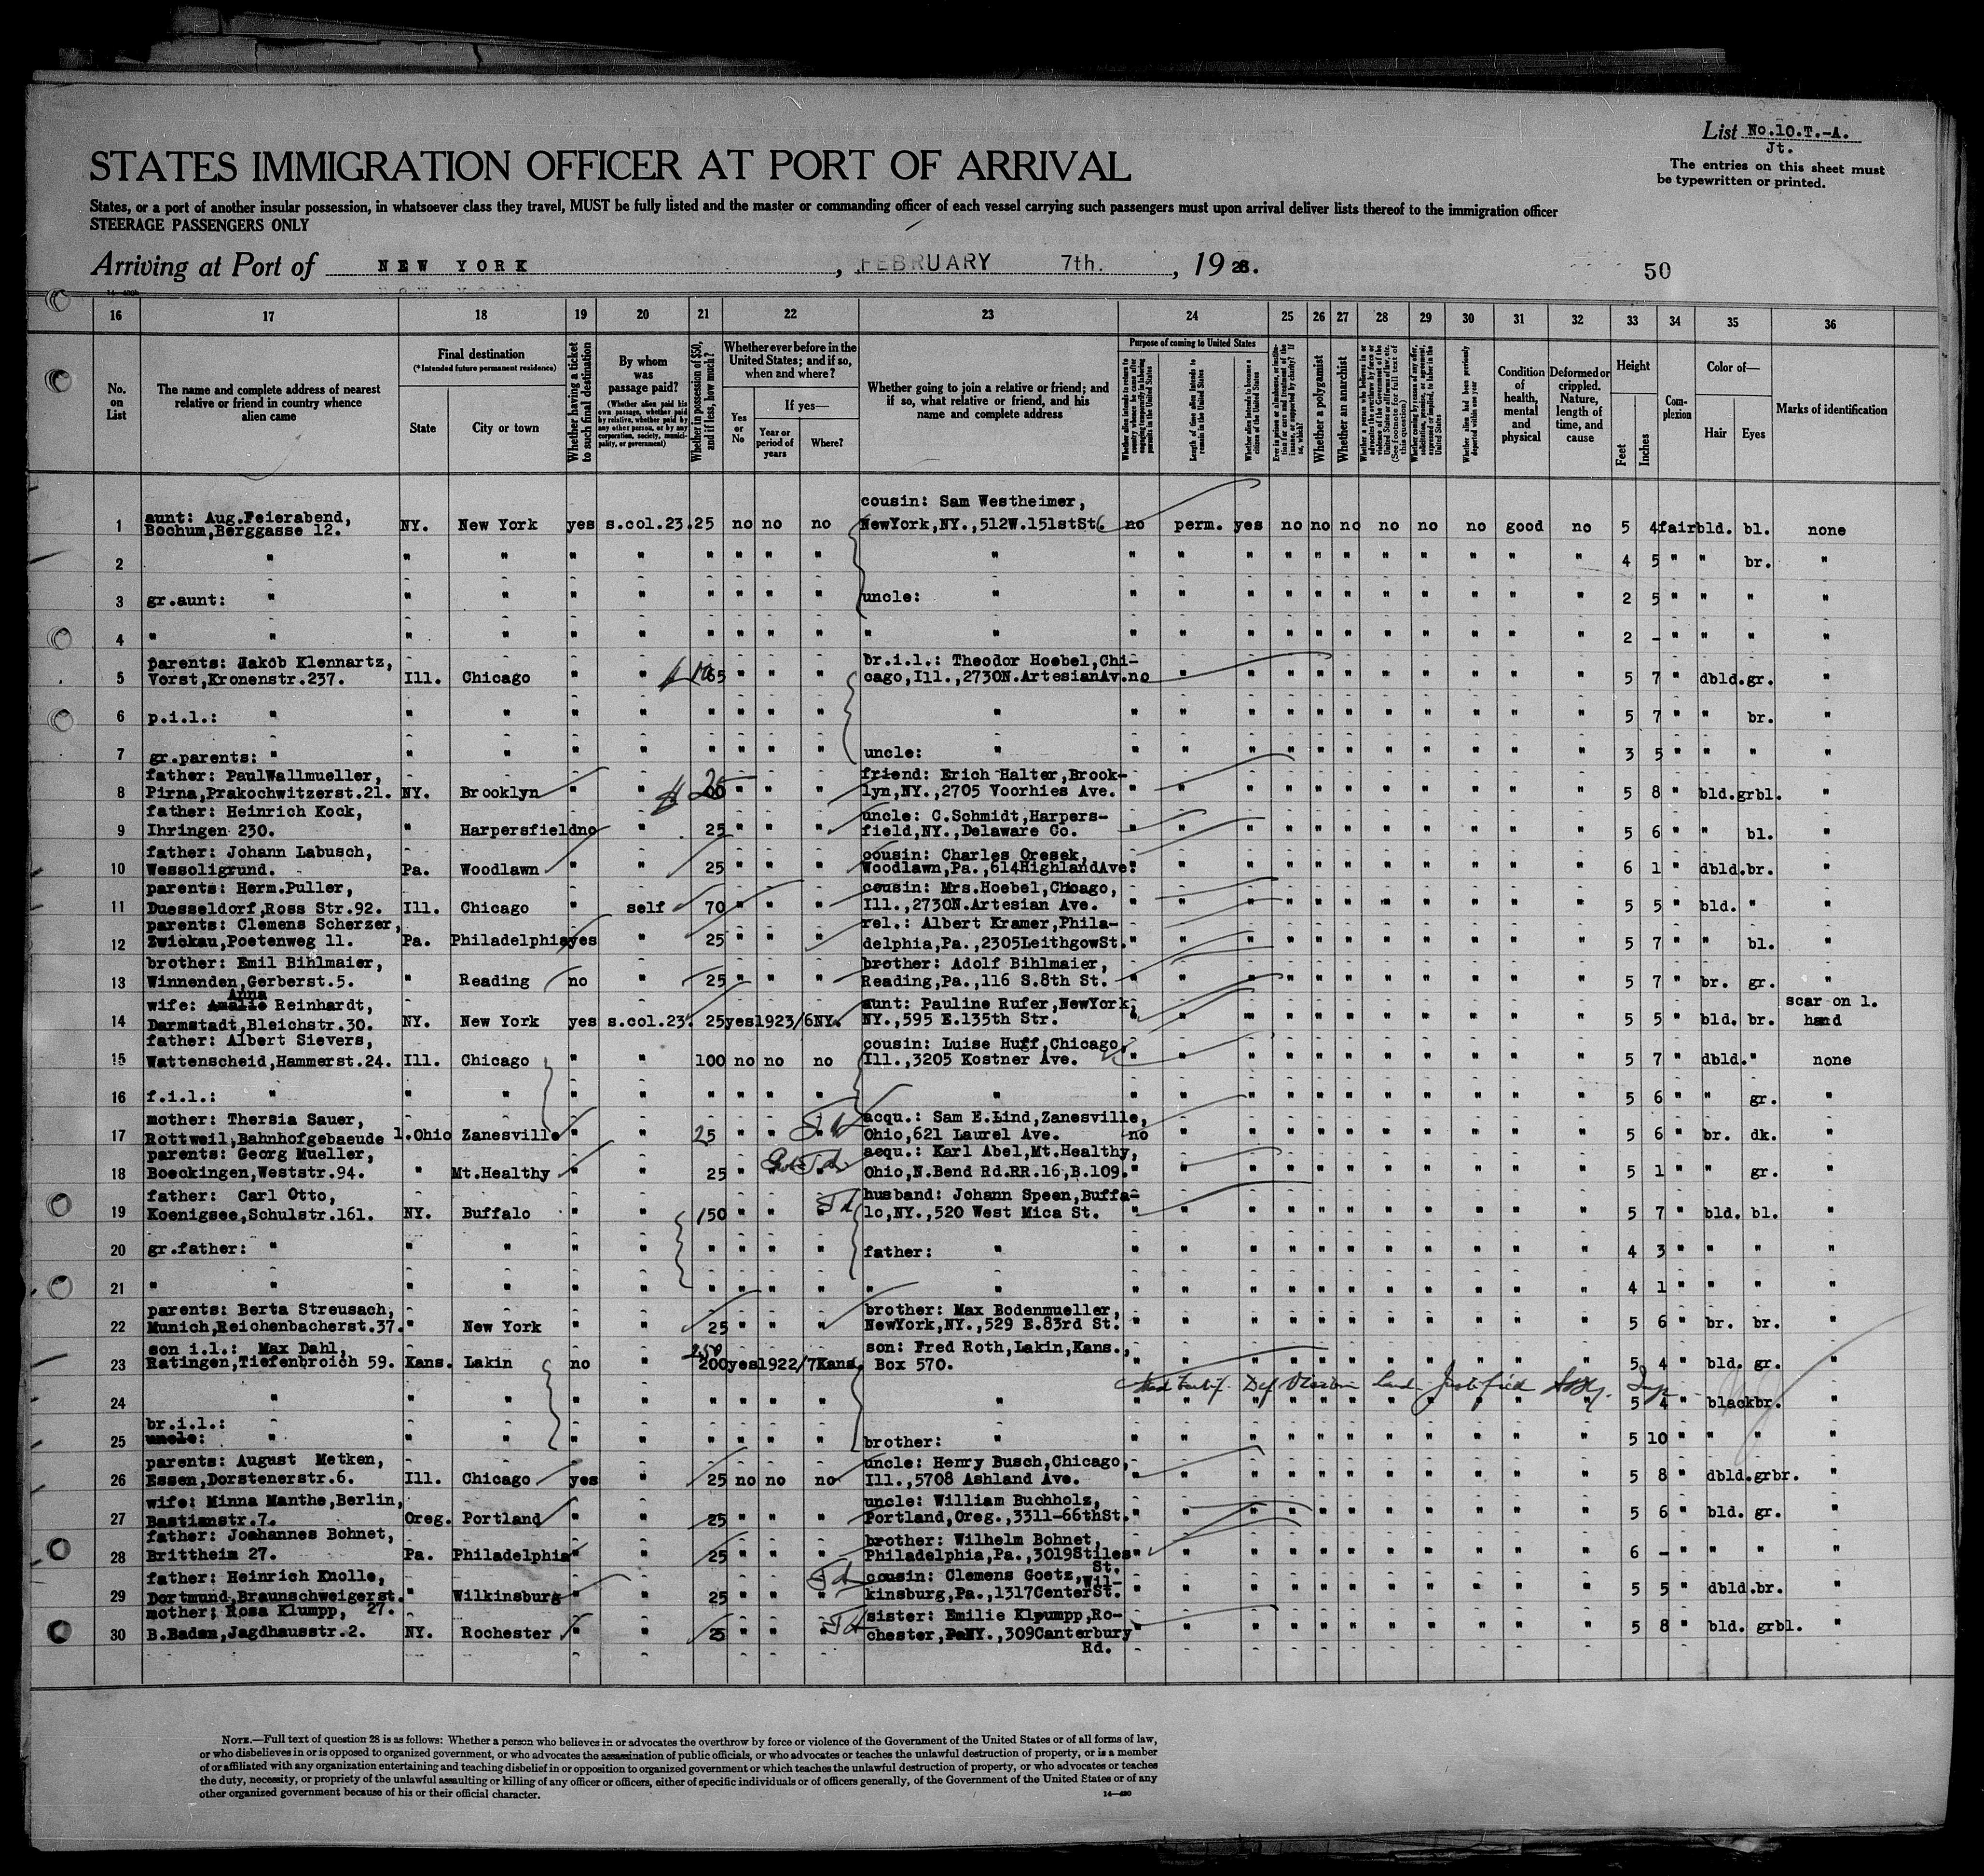 List No.10.T.-A.
Jt.
The entries on this sheet must
be typewritten or printed.
STATES IMMIGRATION OFFICER AT PORT OF ARRIVAL
States, or a port of another insular possession, in whatsoever class they travel, MUST be fully listed and the master or commanding officer of each vessel carrying such passengers must upon arrival deliver lists thereof to the immigration officer
STEERAGE PASSENGERS ONLY
Arriving at Port of NEW YORK, FEBRUARY 7th., 1928.
50
16 17 18 19 20 21 22 23 24 25 26 27 28 29 30 31 32 33 34 35 36
No. on List
The name and complete address of nearest relative or friend in country whence alien came
Final destination
(*Intended future permanent residence)
State
City or town
Whether having a ticket to such final destination
By whom was passage paid?
(Whether alien paid his own passage, whether paid by relative, whether paid by any other person, or by any corporation, society, municipality, or government)
Whether in possession of $50, and if less, how much?
Whether ever before in the United States; and if so, when and where?
Yes or No
If yes—
Year or period of years
Where?
Whether going to join a relative or friend; and if so, what relative or friend, and his name and complete address
Purpose of coming to United States
Length of time alien intends to remain in the United States
Whether alien intends to become a citizen of the United States
Whether a polygamist
Whether an anarchist
(See footnote for full text of this question)
Whether alien had been previously deported within one year
Condition of health, mental and physical
Deformed or crippled. Nature, length of time, and cause
Height
Feet
Inches
Complexion
Color of—
Hair
Eyes
Marks of identification
1 aunt: Aug.Feierabend, cousin: Sam Westheimer,
Bochum,Berggasse 12. NY. New York yes s.col.23. 25 no no no NewYork,NY.,512W.151stSt. no perm. yes no no no no no no good no 5 4 fair bld. bl. none
2 " " " " " " " " " " " " " " " " " " " " " " 4 5 " " br. "
3 gr.aunt: " " " " " " " " " uncle: " " " " " " " " " " " " 2 5 " " " "
4 " " " " " " " " " " " " " " " " " " " " " " " 2 - " " " "
5 parents: Jakob Klennartz, br.i.l.: Theodor Hoebel,Chi-
Vorst,Kronenstr.237. Ill. Chicago " " 65 " " " cago,Ill.,2730N.ArtesianAv. no " " " " " " " " " " 5 7 " dbld. gr. "
6 p.i.l.: " " " " " " " " " " " " " " " " " " " " " " 5 7 " " br. "
7 gr.parents: " " " " " " " " " uncle: " " " " " " " " " " " " 3 5 " " " "
8 father: PaulWallmueller, friend: Erich Halter,Brook-
Pirna,Prakochwitzerst.21. NY. Brooklyn " " 25 " " " lyn,NY.,2705 Voorhies Ave. " " " " " " " " " " " 5 8 " bld. grbl. "
9 father: Heinrich Kock, uncle: C.Schmidt,Harpers-
Ihringen 230. " Harpersfield no " 25 " " " field,NY.,Delaware Co. " " " " " " " " " " " 5 6 " " bl. "
10 father: Johann Labusch, cousin: Charles Oresek,
Wessoligrund. Pa. Woodlawn " " 25 " " " Woodlawn,Pa.,614HighlandAve. " " " " " " " " " " " 6 1 " dbld. br. "
11 parents: Herm.Puller, cousin: Mrs.Hoebel,Chicago,
Duesseldorf,Ross Str.92. Ill. Chicago " self 70 " " " Ill.,2730N.Artesian Ave. " " " " " " " " " " " 5 5 " bld. " "
12 parents: Clemens Scherzer, rel.: Albert Kramer,Phila-
Zwickau,Poetenweg 11. Pa. Philadelphia yes " 25 " " " delphia,Pa.,2305LeithgowSt. " " " " " " " " " " " 5 7 " " bl. "
13 brother: Emil Bihlmaier, brother: Adolf Bihlmaier,
Winnenden,Gerberst.5. " Reading no " 25 " " " Reading,Pa.,116 S.8th St. " " " " " " " " " " " 5 7 " br. gr. "
Anna
14 wife: Amalie Reinhardt, aunt: Pauline Rufer,NewYork, scar on l.
Darmstadt,Bleichstr.30. NY. New York yes s.col.23. 25 yes 1923/6 NY. NY.,595 E.135th Str. " " " " " " " " " " " 5 5 " bld. br. hand
15 father: Albert Sievers, cousin: Luise Huff,Chicago,
Wattenscheid,Hammerst.24. Ill. Chicago " " 100 no no no Ill.,3205 Kostner Ave. " " " " " " " " " " " 5 7 " dbld. " none
16 f.i.l.: " " " " " " " " " " " " " " " " " " " " " " 5 6 " " gr. "
17 mother: Thersia Sauer, acqu.: Sam E.Lind,Zanesville,
Rottweil,Bahnhofgebaeude 1. Ohio Zanesville " " 25 " " " Ohio,621 Laurel Ave. no " " " " " " " " " " 5 6 " br. dk. "
18 parents: Georg Mueller, acqu.: Karl Abel,Mt.Healthy,
Boeckingen,Weststr.94. " Mt.Healthy " " 25 " " " Ohio,N.Bend Rd.RR.16,B.109. " " " " " " " " " " " 5 1 " " gr. "
19 father: Carl Otto, husband: Johann Speen,Buffa-
Koenigsee,Schulstr.161. NY. Buffalo " " 150 " " " lo,NY.,520 West Mica St. " " " " " " " " " " " 5 7 " bld. bl. "
20 gr.father: " " " " " " " " " father: " " " " " " " " " " " " 4 3 " " " "
21 " " " " " " " " " " " " " " " " " " " " " " 4 1 " " " "
22 parents: Berta Streusach, brother: Max Bodenmueller,
Munich,Reichenbacherst.37. " New York " " 25 " " " NewYork,NY.,529 E.83rd St. " " " " " " " " " " " 5 6 " br. br. "
23 son i.l.: Max Dahl, 250 son: Fred Roth,Lakin,Kans.,
Ratingen,Tiefenbroich 59. Kans. Lakin no " 200 yes 1922/7 Kans. Box 570. " " " " " " " " " " " 5 4 " bld. gr. "
24 " " " " " " " " " " " " " " " " " " " " " 5 4 " black br. "
25 br.i.l.:
uncle: " " " " " " " " " brother: " " " " " " " " " " " 5 10 " " " "
26 parents: August Metken, uncle: Henry Busch,Chicago,
Essen,Dorstenerstr.6. Ill. Chicago yes " 25 no no no Ill.,5708 Ashland Ave. " " " " " " " " " " " 5 8 " dbld. grbr. "
27 wife: Minna Manthe,Berlin, uncle: William Buchholz,
Bastianstr.7. Oreg. Portland " " 25 " " " Portland,Oreg.,3311-66thSt. " " " " " " " " " " " 5 6 " bld. gr. "
28 father: Joahannes Bohnet, brother: Wilhelm Bohnet,
Brittheim 27. Pa. Philadelphia " " 25 " " " Philadelphia,Pa.,3019Stiles St. " " " " " " " " " " " 6 - " " " "
29 father: Heinrich Knolle, cousin: Clemens Goetz,Wil-
Dortmund,Braunschweigerst. 27. " Wilkinsburg " " 25 " " " kinsburg,Pa.,1317CenterSt. " " " " " " " " " " " 5 5 " dbld. br. "
30 mother: Rosa Klumpp, sister: Emilie Klpumpp,Ro-
B.Baden,Jagdhausstr.2. NY. Rochester " " 25 " " " chester,PaNY.,309Canterbury Rd. " " " " " " " " " " " 5 8 " bld. grbl. "
NOTE.—Full text of question 28 is as follows: Whether a person who believes in or advocates the overthrow by force or violence of the Government of the United States or of all forms of law,
or who disbelieves in or is opposed to organized government, or who advocates the assassination of public officials, or who advocates or teaches the unlawful destruction of property, or is a member
of or affiliated with any organization entertaining and teaching disbelief in or opposition to organized government or which teaches the unlawful destruction of property, or who advocates or teaches
the duty, necessity, or propriety of the unlawful assaulting or killing of any officer or officers, either of specific individuals or of officers generally, of the Government of the United States or of any
other organized government because of his or their official character.
14—480